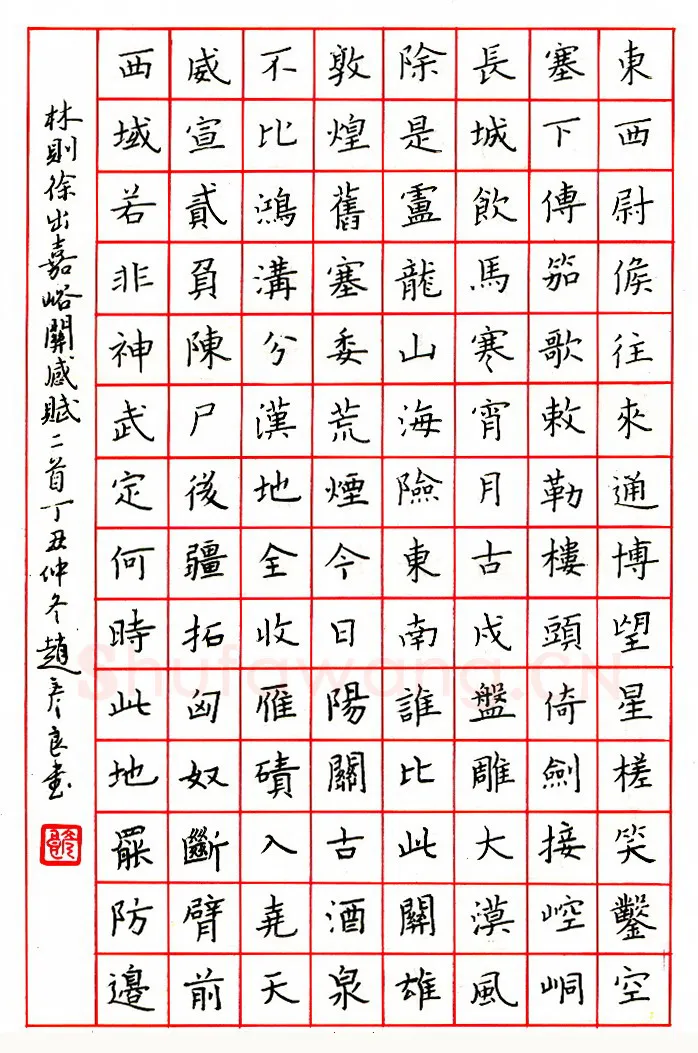 東西尉候往來通博望星槎笑鑿空
塞下傳笳歌敕勒樓頭倚劍接崆峒
長城飲馬寒宵月古戍盤雕大漠風
除是盧龍山海險東南誰比此關雄
敦煌舊塞委荒煙今日陽關古酒泉
不比鴻溝分漢地全收雁磧入堯天
威宣貳負陳尸後疆拓匈奴斷臂前
西域若非神武定何時此地罷防邊
林則徐出嘉峪關感賦二首丁丑仲冬趙彥良書
Shufawang.CN